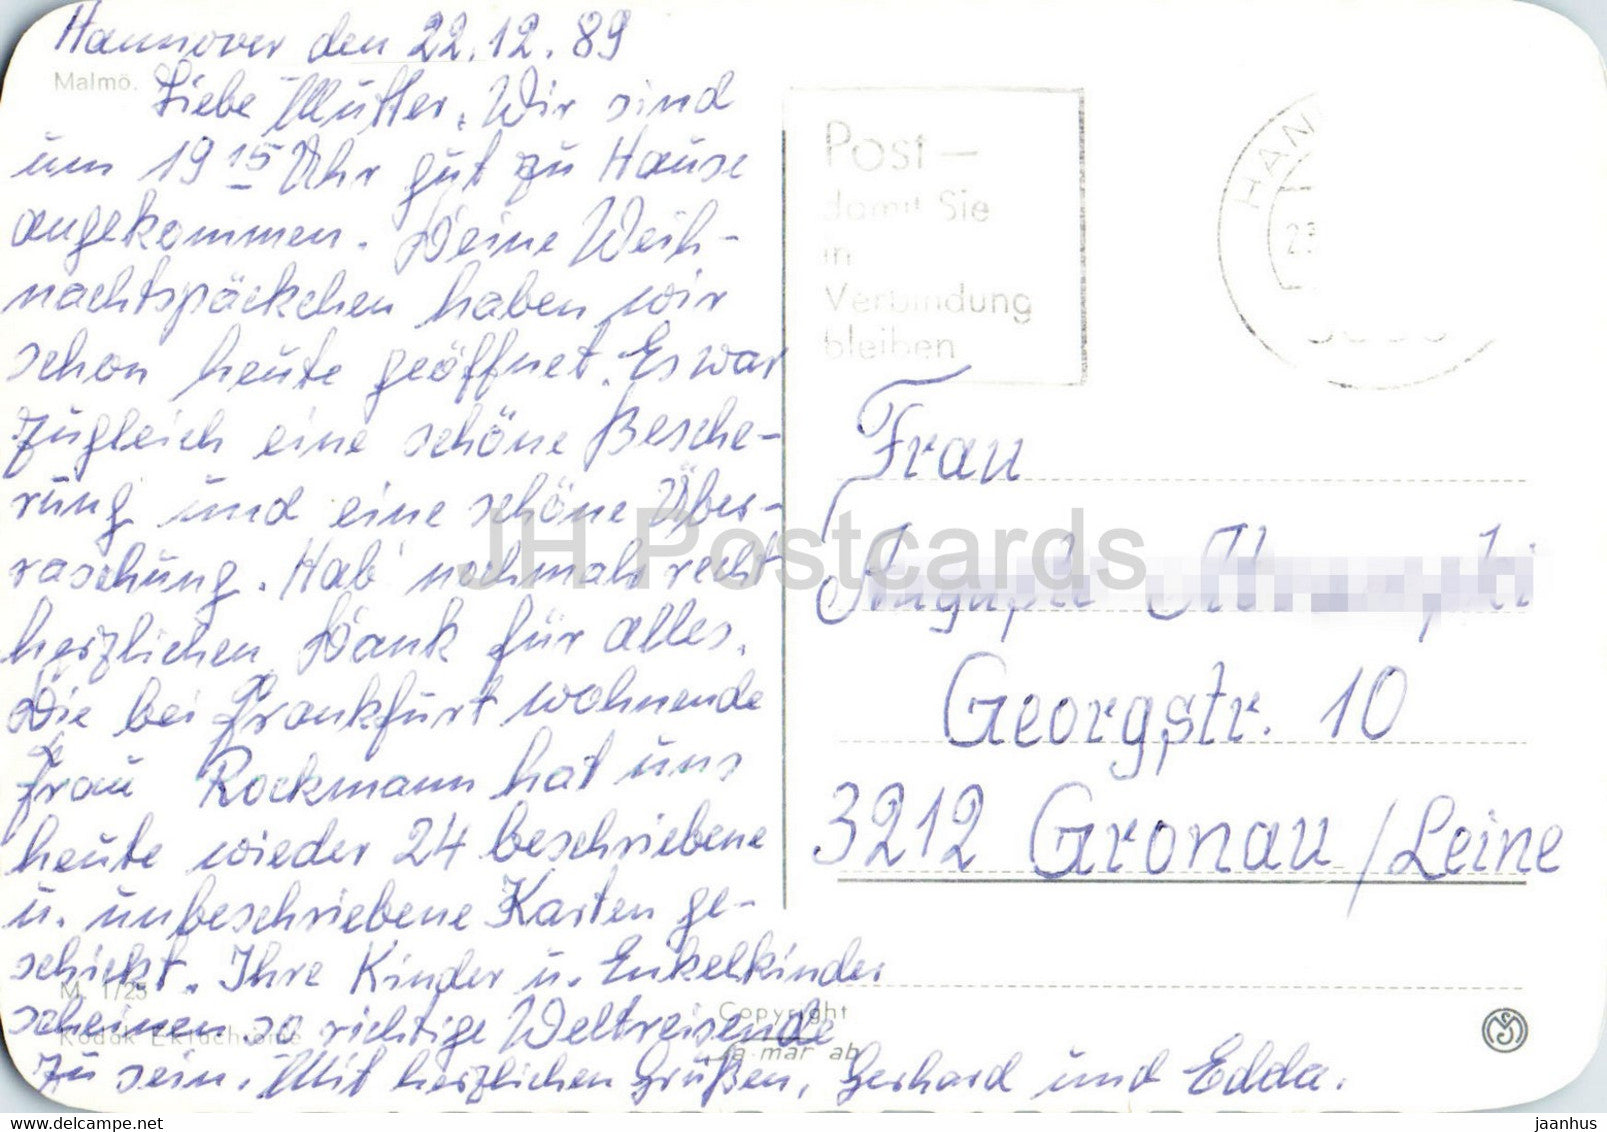 Hannover den 22.12.89
Malmö.
Liebe Mutter, Wir sind
um 19 15 Uhr gut zu Hause
angekommen. Deine Weih-
nachtspäckchen haben wir
schon heute geöffnet. Es war
zugleich eine schöne Besche-
rung und eine schöne Über-
raschung. Hab' nochmals recht
herzlichen Dank für alles.
Die bei Frankfurt wohnende
Frau Rockmann hat uns
heute wieder 24 beschriebene
u. unbeschriebene Karten ge-
schickt. Ihre Kinder u. Enkelkinder
scheinen so richtige Weltreisende
zu sein. Mit herzlichen Grüßen, Gerhard und Edda.
M. 1/25
Kodak Ektachrome
Copyright
Post-
damit Sie
in
Verbindung
bleiben
HAN
23
Frau
Georgstr. 10
3212 Gronau/Leine
JH Postcards
jaanhus
www.delcampe.net